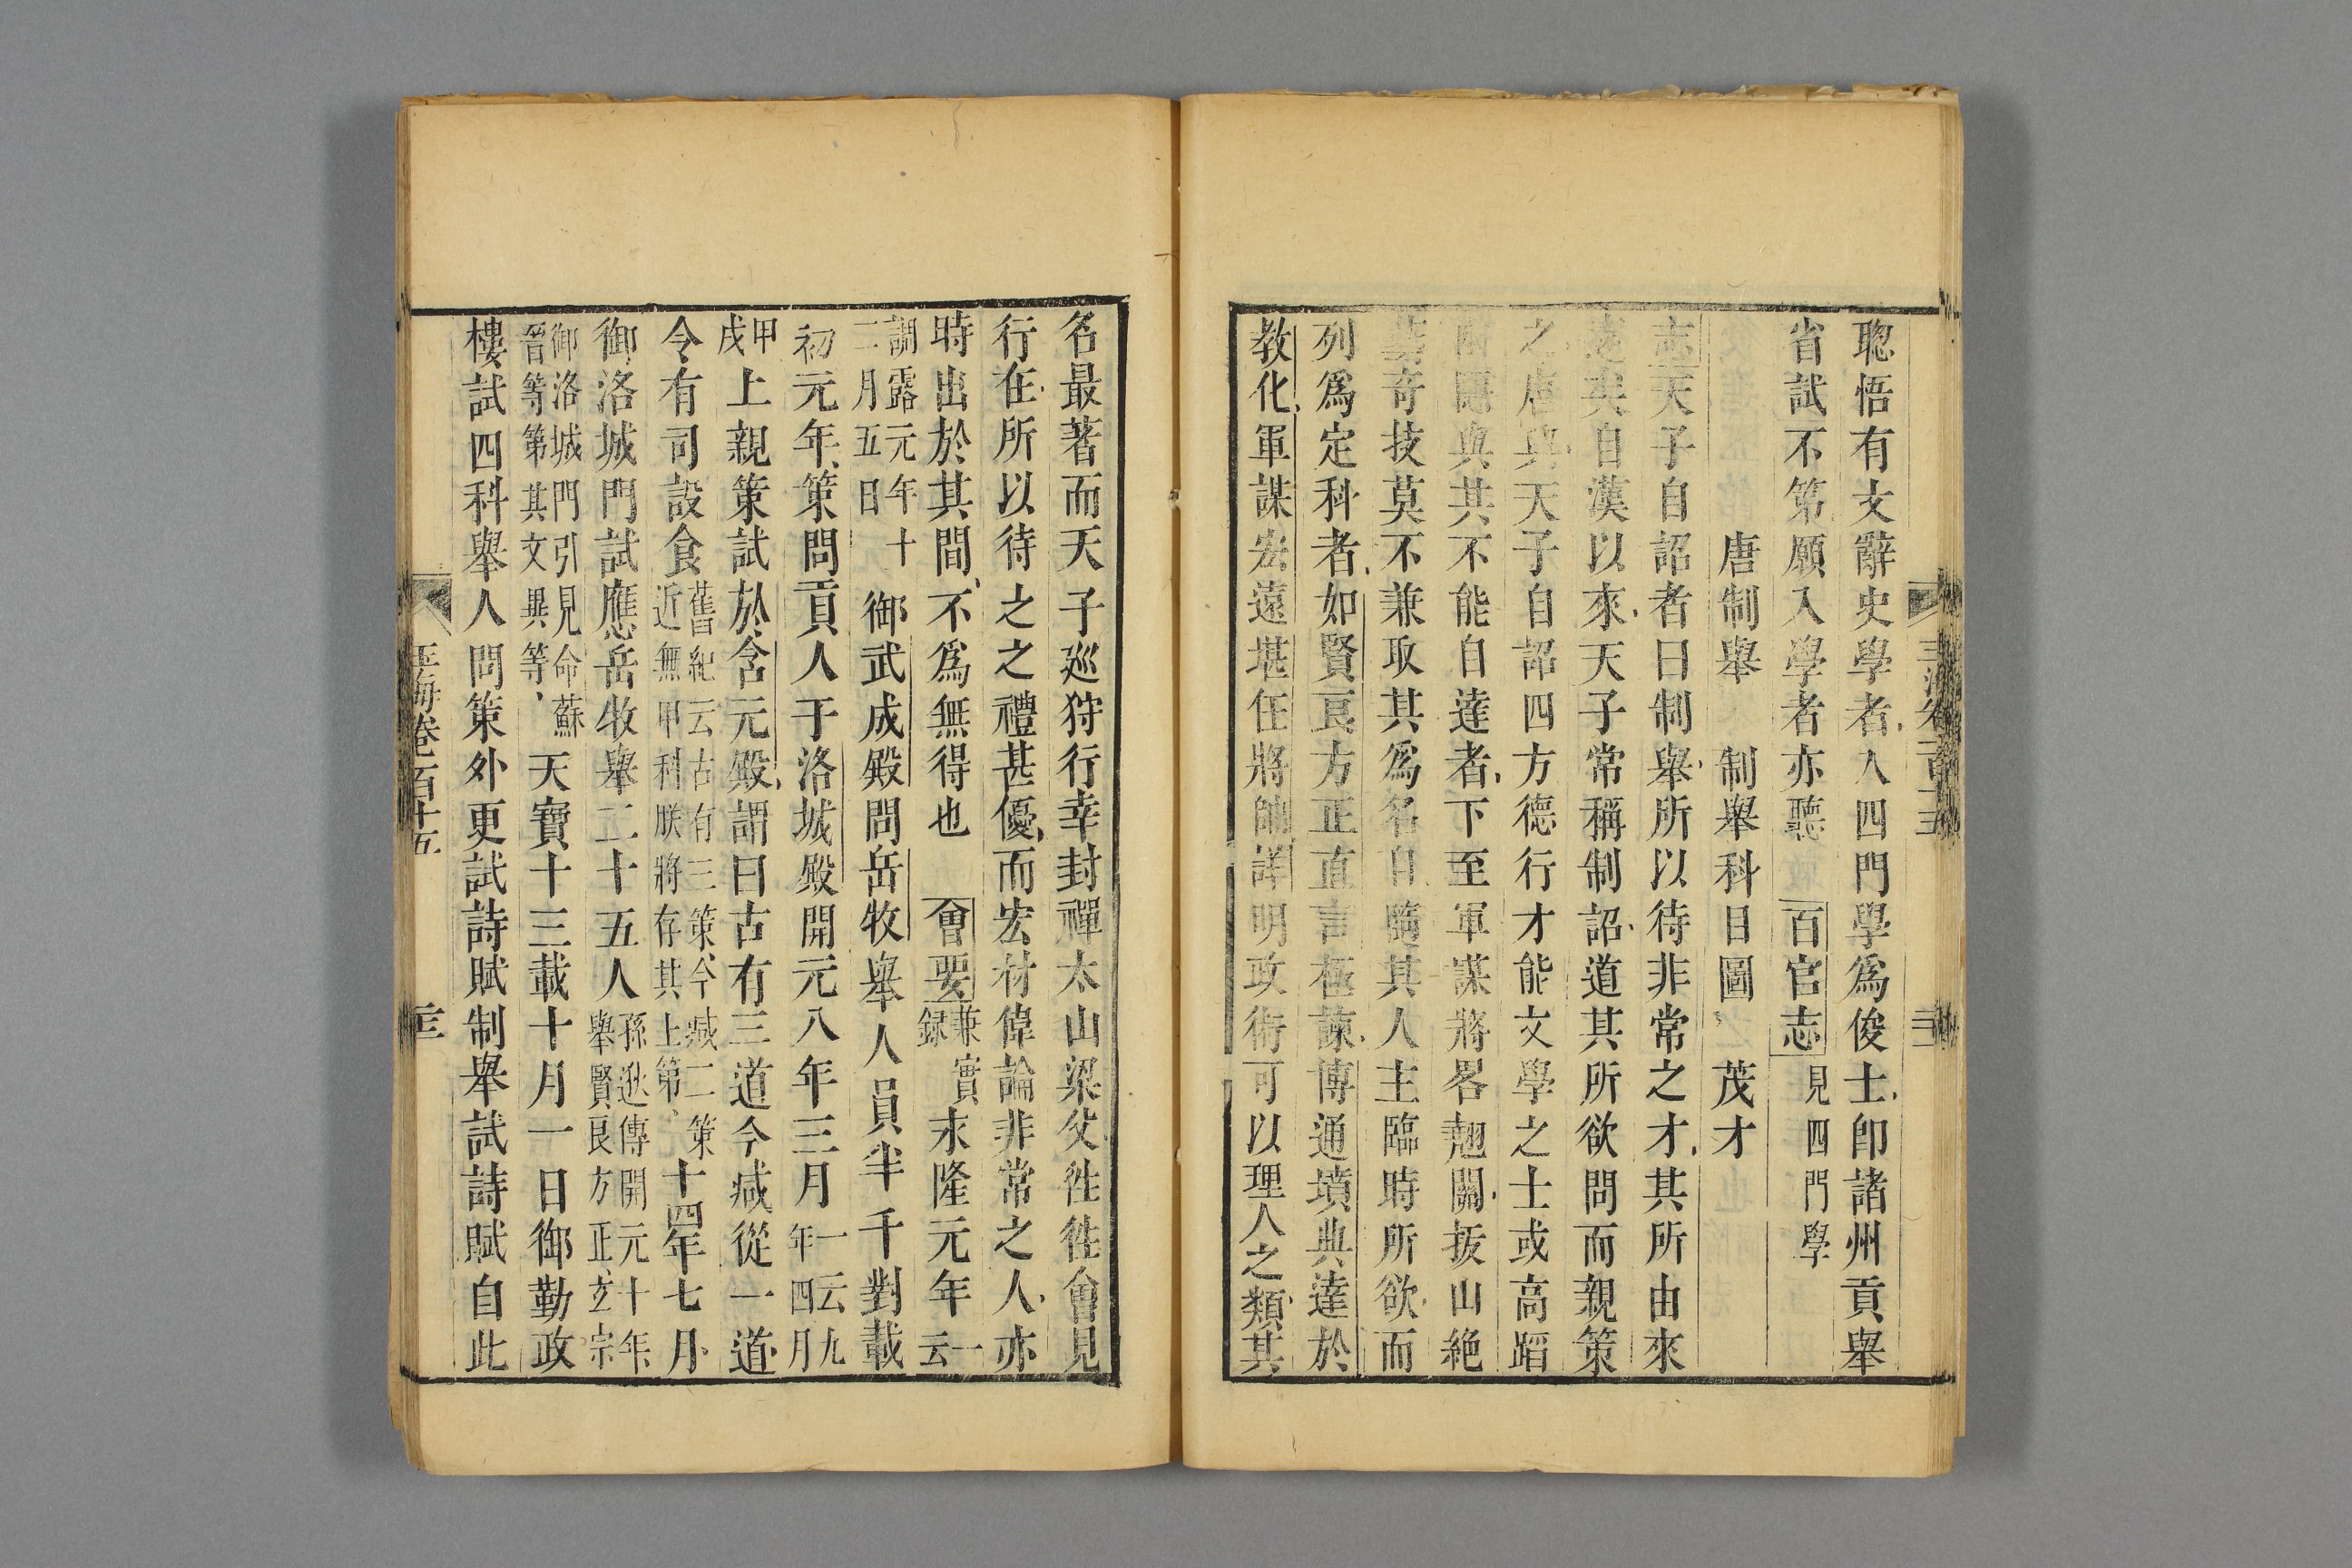 聦悟有文辭史學者入四門學爲俊士卽諸州貢舉
省試不第願入學者亦聽 百官志 見四門學
唐制舉 制舉科目圖 茂才
志天子自詔者曰制舉所以待非常之才其所由來
遠矣自漢以來天子常稱制詔道其所欲問而親策
之唐興天子自詔四方德行才能文學之士或高蹈
幽隱與其不能自達者下至軍謀將畧翹關拔山絶
藝奇技莫不兼取其爲名目隨其人主臨時所欲而
列爲定科者如賢良方正直言極諫博通墳典達於
教化軍謀宏遠堪任將帥詳明政術可以理人之類其
名最著而天子廵狩行幸封禪太山梁父徃徃會見
行在所以待之之禮甚優而宏材偉論非常之人亦
時出於其間不爲無得也 會要 兼實録 永隆元年 一云
調露元年十二月五日 御武成殿問岳牧舉人員半千對 載
初元年策問貢人于洛城殿 開元八年三月 一云九年四月
甲戌上親策試於含元殿謂曰古有三道今减從一道
令有司設食 舊紀云古有三策今减二策近無甲科朕將存其上第 十四年七月
御洛城門試應岳牧舉二十五人 孫逖傳開元十年舉賢良方正玄宗
御洛城門引見命蘇晉等第其文異等 天寶十三載十月一日御勤政
樓試四科舉人問策外更試詩賦制舉試詩賦自此
玉海卷二百十五